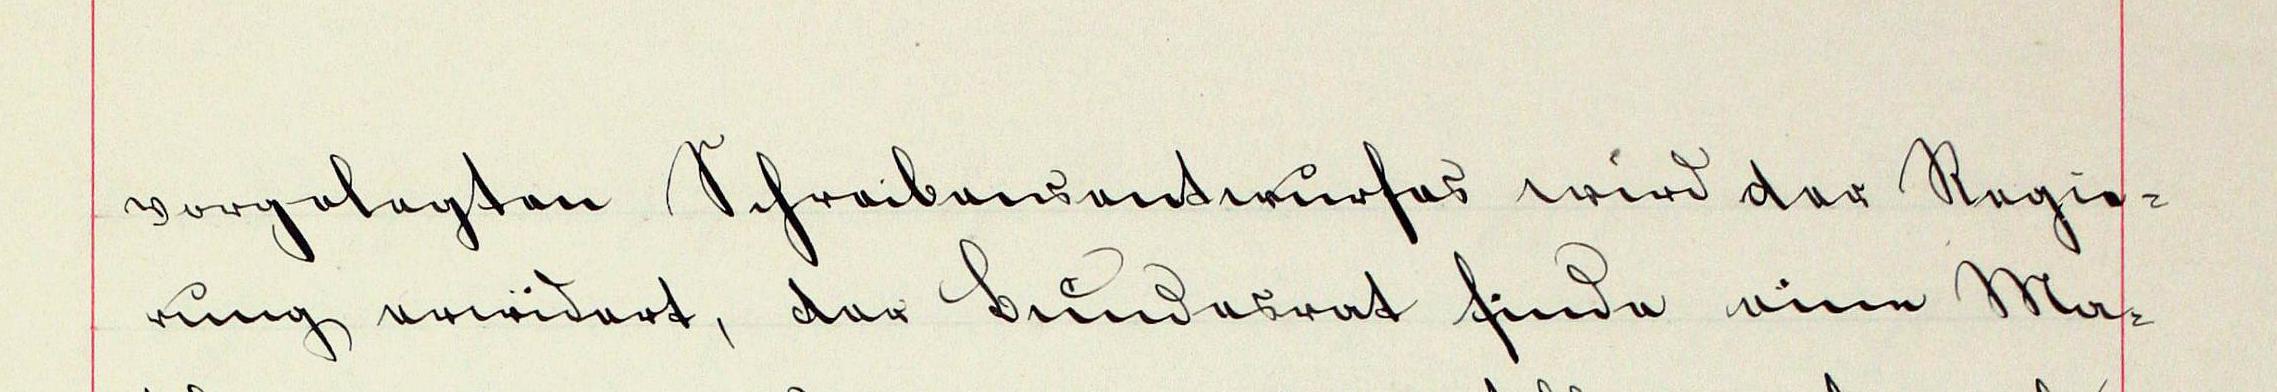 vorgelegten Schreibensentwurfes wird der Regie-
rung erwidert, der Bundesrat finde eine Ma-